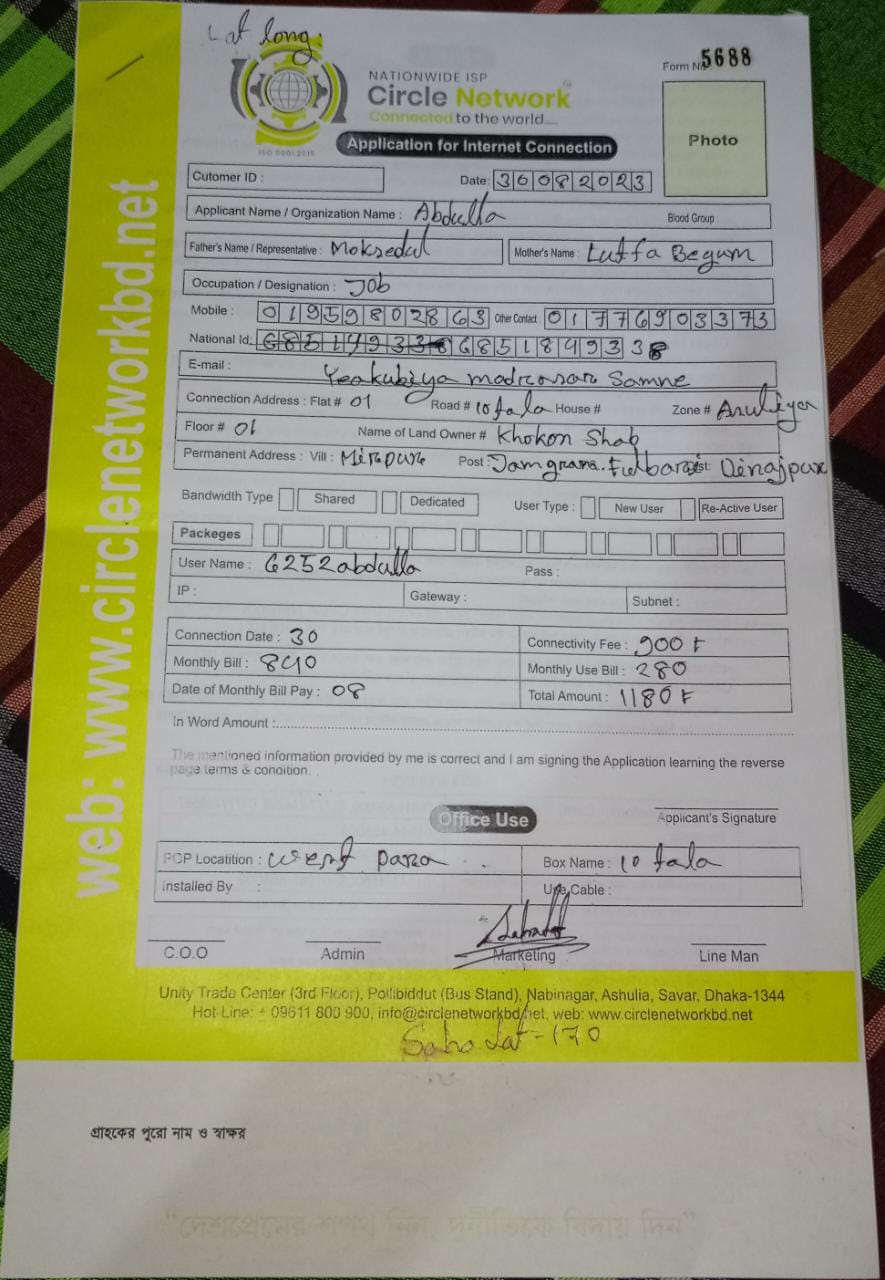 Lat long:
Form No. 5688
NATIONWIDE ISP
Circle Network
Connected to the world....
ISO 9001:2015
Application for Internet Connection
Photo
Cutomer ID :
Date: 30082023
Applicant Name / Organization Name : Abdulla Blood Group
Father's Name / Representative : Moksedul Mother's Name : Lutfa Begum
Occupation / Designation : Job
Mobile : 01959802863 Other Contact : 01776903373
National Id: 6851849338
E-mail :
Yeakubiya madrasar Samne
Connection Address : Flat # 01 Road # 10 tala House # Zone # Asuliya
Floor # 01 Name of Land Owner # Khokon Shab
Permanent Address : Vill : Mirpur Post : Jamgram. Fulbari Dist: Dinajpur
Bandwidth Type Shared Dedicated User Type : New User Re-Active User
Packeges
User Name : 6252abdulla Pass :
IP : Gateway : Subnet :
Connection Date : 30 Connectivity Fee : 900 ৳
Monthly Bill : 840 Monthly Use Bill : 280
Date of Monthly Bill Pay : 08 Total Amount : 1180 ৳
In Word Amount :
The mentioned information provided by me is correct and I am signing the Application learning the reverse
page terms & condition.
Office Use Applicant's Signature
POP Locatition : West para Box Name : 10 tala
Installed By : Use Cable :
C.O.O Admin Marketing Line Man
Unity Trade Center (3rd Floor), Pollibiddut (Bus Stand), Nabinagar, Ashulia, Savar, Dhaka-1344
Hot Line: + 09611 800 900, info@circlenetworkbd.net, web: www.circlenetworkbd.net
Saho dat-170
web: www.circlenetworkbd.net
গ্রাহকের পুরো নাম ও স্বাক্ষর
"দেশপ্রেমের শপথ নিন, দুর্নীতিকে বিদায় দিন"